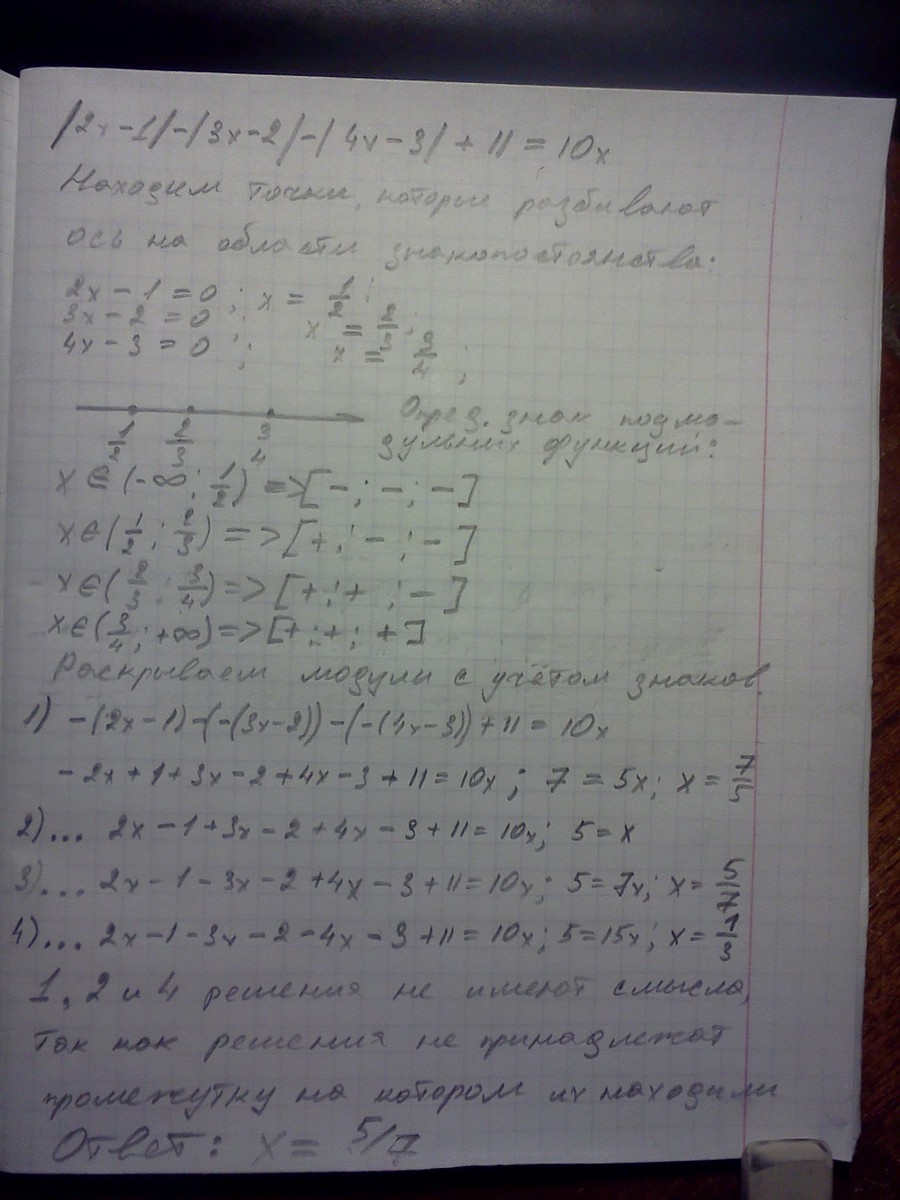 |2x-1|-|3x-2|-|4x-3|+11=10x
Находим точки, которые разбивают
ось на области знакопостоянства:
2x-1=0; x=1/2;
3x-2=0; x=2/3;
4x-3=0; x=3/4;
1/2 2/3 3/4 Опред. знак подмо-
дульных функций:
x∈(-∞; 1/2) =>[-;-;-]
x∈(1/2; 2/3) =>[+;-;-]
x∈(2/3; 3/4)=>[+;+;-]
x∈(3/4; +∞)=>[+;+;+]
Раскрываем модули с учётом знаков
1) -(2x-1)-(-(3x-2))-(-(4x-3))+11=10x
-2x+1+3x-2+4x-3+11=10x; 7=5x; x=7/5
2)... 2x-1+3x-2+4x-3+11=10x; 5=x
3)... 2x-1-3x-2+4x-3+11=10x; 5=7x; x=5/7
4)... 2x-1-3x-2-4x-3+11=10x; 5=15x; x=1/3
1, 2 и 4 решения не имеют смысла,
так как решения не принадлежат
промежутку на котором их находили
Ответ: x= 5/7